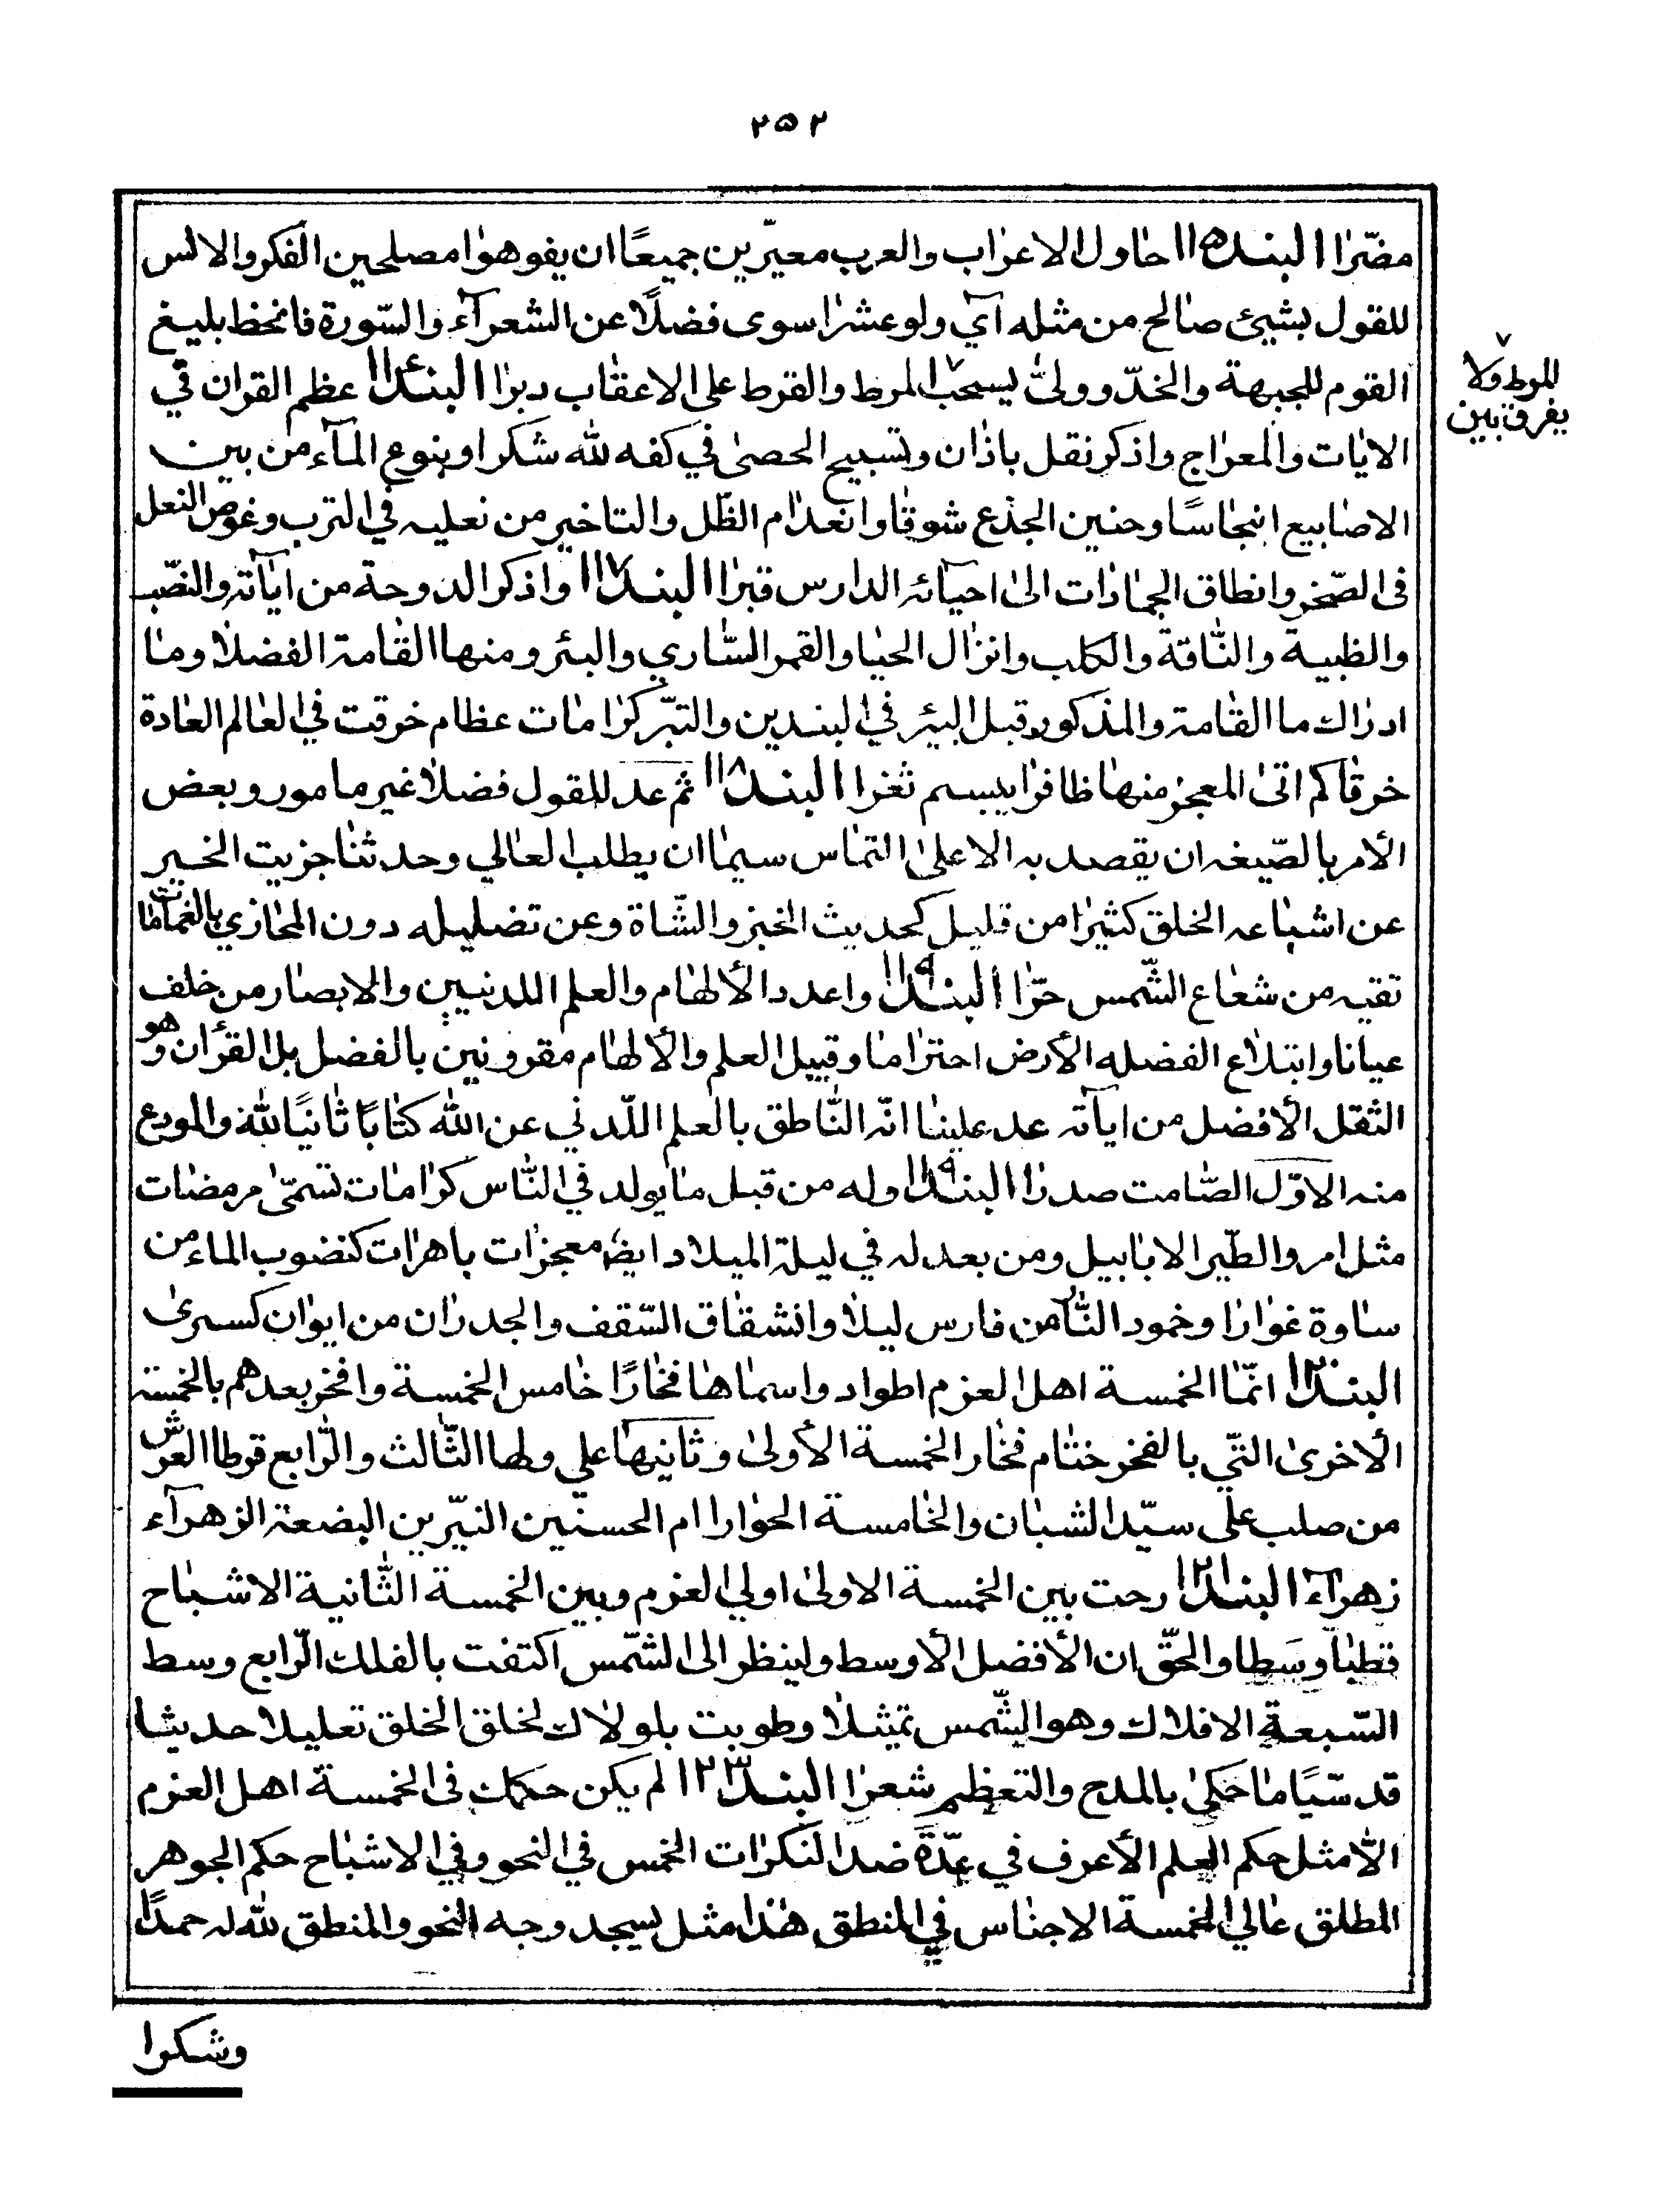 ٢٥٢
مضّرا البند ١١٥ حاول الاعراب والعرب معيّرين جميعًا ان يفوهوا مصلحين الفكر والالس
للقول بشیئ صالح من مثله آي ولو عشرا سوى فضلًا عن الشعرآء والسّورة فانحظ بليغ
القوم للجبهة والخدّ وولىّ ليسحب المرط والقرط على الاعقاب دبرا البند ١١٦ عظم القران في
للمرط ولا
يفرق بين
الايات والمعراج واذكر نقل باذان وتسبيح الحصى في كفه لله شكرا وبنوع المآء من بين
الاصابيع انبجاسًا وحنين الجذع شوقا وانعدام الظّل والتاخير من نعليه في الترب وغوص النعل
فى الصّخر وانطاق الجمادات الى احيآئه الدارس قبرا البند ١١٧ واذكر الدوحة من ايآته والنصّب
والظبية والنّاقة والكلب وانزال الحيا والقمر السّاري والبئر ومنها القامة الفضلا وما
ادراك ما القامة والمذكور قبل البئر في البندين والتبّر كرامات عظام خرقت في العالم العادة
خرقا كم اتى المعجز منها ظافرا يبسم ثغرا البند ١١٨ ثم عد للقول فضلا غير مامور وبعض
الأمر بالصّيغه ان يقصد به الاعلىٰ التماس سيما ان يطلب العالي وحدثنا جزيت الخير
عن اشباعه الخلق كثيرا من قليل كحديث الخبز والشّاة وعن تضليله دون المحازي بالغمامات
تقيه من شعاع الشّمس حرّا البند ١١٩ واعدد الألهام والعلم اللدنيين والابصار من خلف
عيانا وابتلاع الفضله الأرض احتراما وقبيل العلم والألهام مقرونين بالفضل بل القرٔان وهو
الثقل الأفضل من ايآته عد علينا انّه النّاطق بالعلم اللّدني عن الله كتابًا ثانيًا لله والمودع
منه الاوّل الصّامت صدرا البند ١١٩ وله من قبل ما يولد في النّاس كرامات تسمّى مرمضات
مثل امر والطّير الابابيل ومن بعد له في ليلة الميلاد ايضا معجزات باهرات كنضوب الماء من
ساوة غوارا وخمود النّار من فارس ليلا وانشقاق السّقف والجدران من ايوان كسرى
البند ١٢٠ انمّا الخمسة اهل العزم اطواد واسماها فخارًا خامس الخمسة وافخر بعدهم بالخمسة
الأخرى التّي بالفخر ختام فخار الخمسة الأولى وثانيها علي ولها الثّالث والرّابع قرطا العرش
من صلب علی سيّد الشبان والخامسة الحوارا ام الحسنين النيّرين البضعة الزهرآء
زهرآء البند ١٢١ رحت بين الخمسة الاولى اولي العزم وبين الخمسة الثّانية الاشباح
قطبا وسطا والحقّ ان الأفضل الأوسط ولينظر الى الشمّس اكتفت بالفلك الرّابع وسط
السّبعة الافلاك وهو الشّمس تمثلا وطوبت بلولاك لخلق الخلق تعليلا حديثا
قدسيّا ما حكى بالمدح والتعظيم شعرا البند ١٢٣ لم يكن حكمك فى الخمسة اهل العزم
الّا مثل حكم العلم الأعرف في عدّة ضد النكرات الخمس في النحو وفي الاشباح حكم الجوهر
المطلق عالي الخمسة الاجناس في المنطق هذا مثل يسجد وجه النحو والمنطق لله له حمدًا
وشكرا